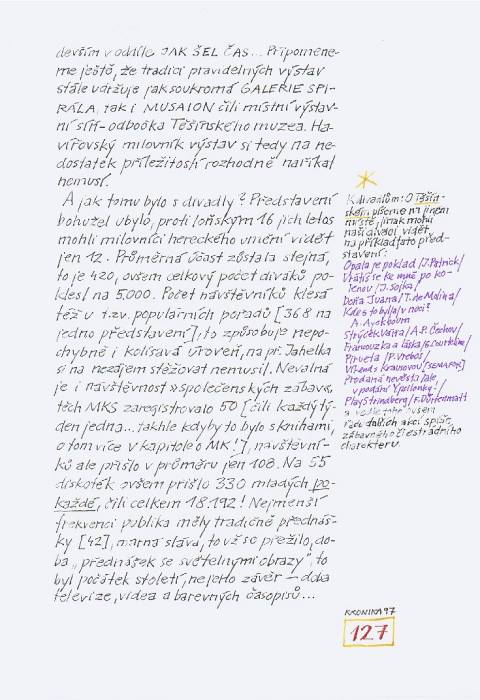 devším v oddíle JAK ŠEL ČAS... Připomene-
me ještě, že tradici pravidelných výstav
stále udržuje jak soukromá GALERIE SPI-
RÁLA, tak i MUSAION čili místní výstav-
ní síň-odbočka Těšínského muzea. Ha-
vířovský milovník výstav si tedy na ne-
dostatek příležitostí rozhodně naříkat
nemusí.
A jak tomu bylo s divadly? Představení
bohužel ubylo, proti loňským 16 jich letos
mohli milovníci hereckého umění vidět
jen 12. Průměrná účast zůstala stejná,
to je 420, ovšem celkový počet diváků po-
klesl na 5.000. Počet návštěvníků klesá
též u t.zv. populárních pořadů [368 na
jedno představení], to způsobuje nepo-
chybně i kolísavá úroveň, na př. Jahelka
si na nezájem stěžovat nemusil. Nevalná
je i návštěvnost »společenských zábav«,
těch MKS zaregistrovalo 50 [čili každý tý-
den jedna... takhle kdyby to bylo s knihami,
o tom více v kapitole o MK!], návštěvní-
ků ale přišlo v průměru jen 108. Na 55
diskoték ovšem přišlo 330 mladých po-
každé, čili celkem 18.192! Nejmenší
frekvenci publika měly tradičně přednáš-
ky [42], marná sláva, to už se přežilo, do-
ba „přednášek se světelnými obrazy", to
byl počátek století, nejeho závěr — doba
televize, videa a barevných časopisů...
K divadlům: O Těšín-
ském píšeme na jiném
místě, jinak mohli
naši diváci vidět
na příklad tato před-
stavení:
Opala je poklad /J. Patrick/
Vrátíš se ke mně po ko-
lenou /J. Sojka/
Don Juana /T. de Molina/
Kdes to byla v noci?
A. Ayckbourn
Strýček Váňa /A.P. Čechov/
Francouzka a láska /G. Courteline/
Pirueta /P. Vrebos/
Víkend s Krausovou [SEMAFOR]
Prodaná nevěsta /ale
v podání Ypsilonky!/
Play Strindberg /F. Dürrenmatt
a vedle toho ovšem
řada dalších akcí spíše
zábavného či estrádního
charakteru.
KRONIKA 97
127